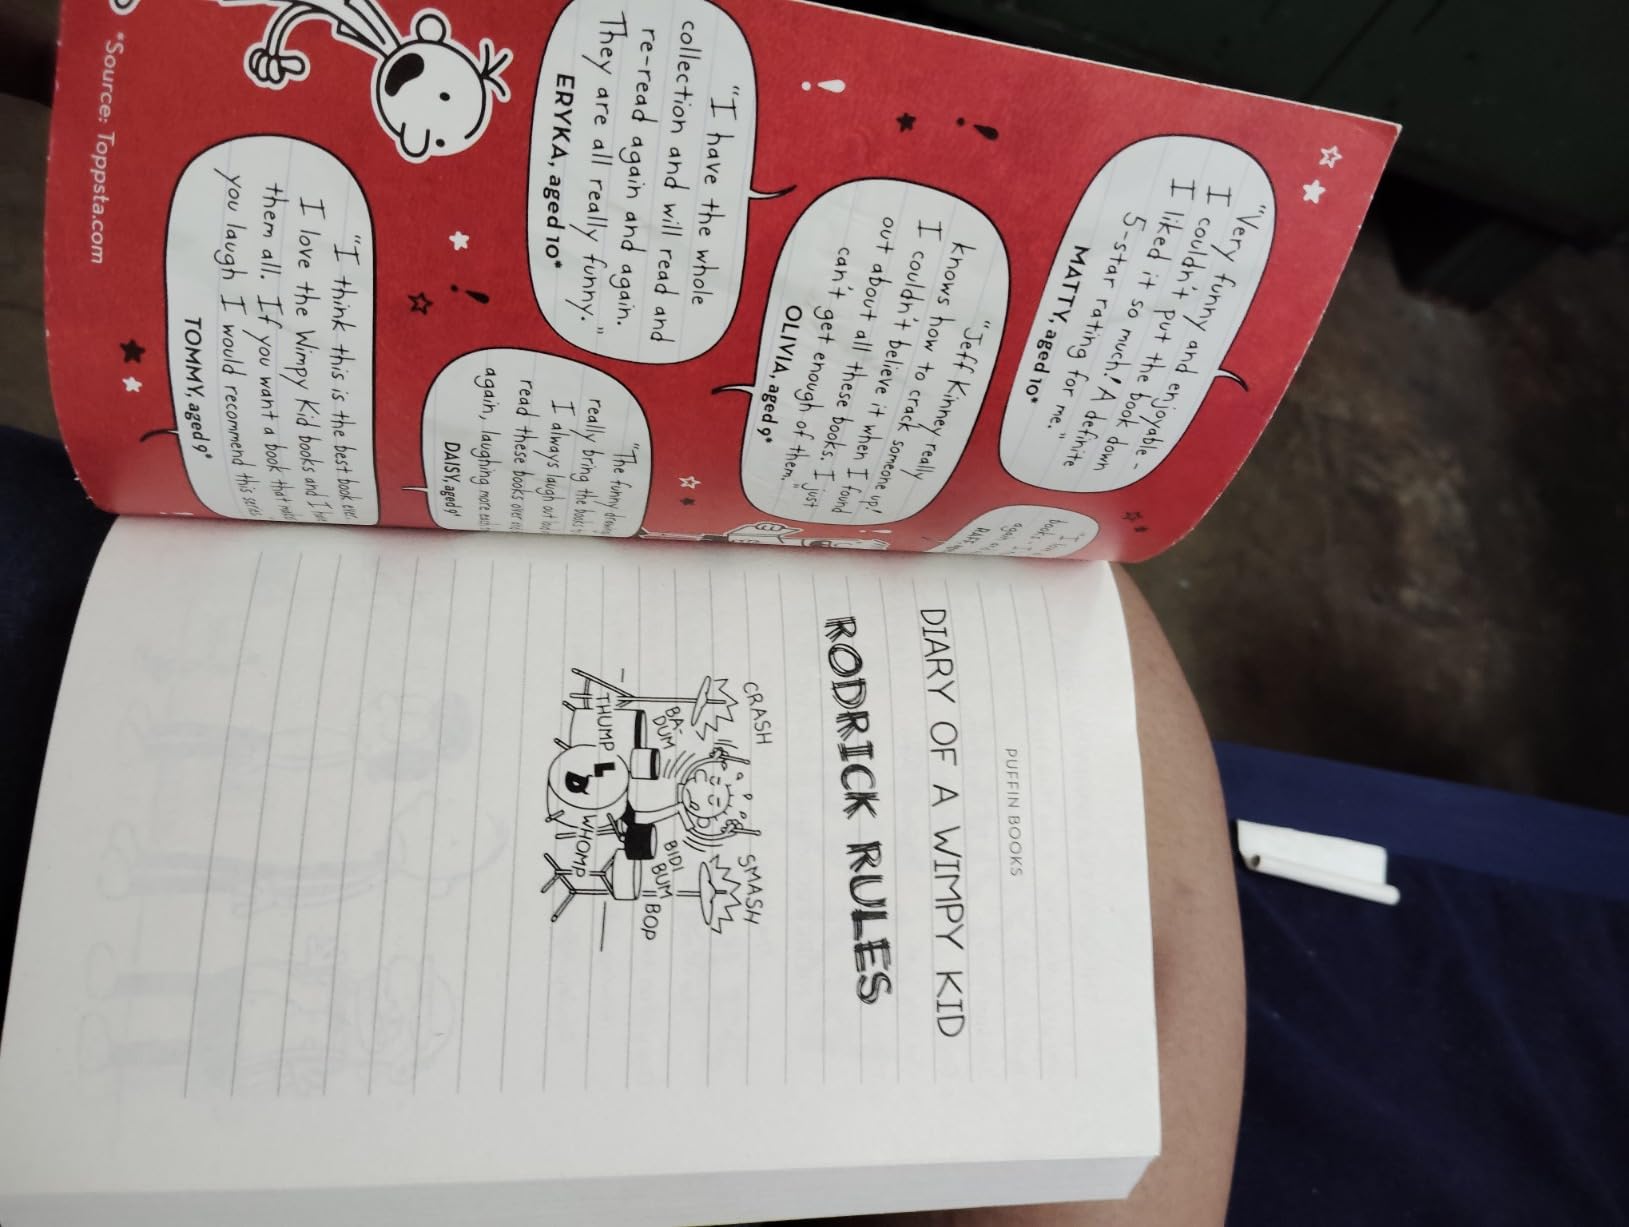 "Very funny and enjoyable -
I couldn't put the book down
I liked it so much! A definite
5-star rating for me."
MATTY, aged 10*
"Jeff Kinney really
knows how to crack someone up!
I couldn't believe it when I found
out about all these books. I just
can't get enough of them."
OLIVIA, aged 9*
"I have the whole
collection and will read and
re-read again and again.
They are all really funny."
ERYKA, aged 10*
"The funny
really bring the books
I always laugh out
read these books over
again, laughing more
DAISY, aged 9*
"I think this is the best book ever.
I love the Wimpy Kid books and I
them all. If you want a book that
you laugh I would recommend this
TOMMY, aged 9*
*Source: Toppsta.com
PUFFIN BOOKS
DIARY OF A WIMPY KID
RODRICK RULES
CRASH
SMASH
BA-
DUM
BIDI
BUM
BOP
THUMP
WHOMP
LD